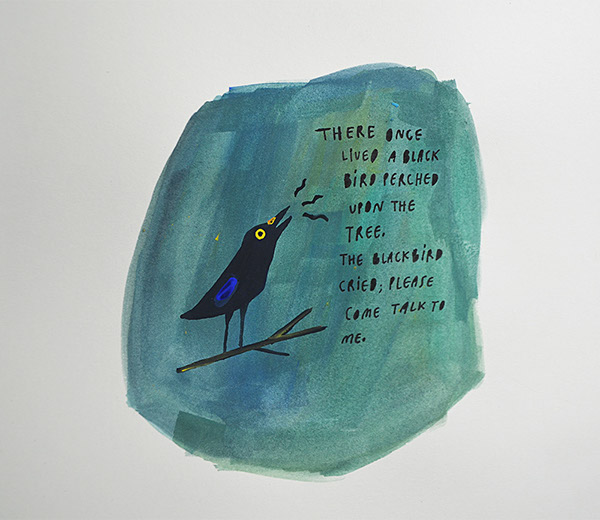 THERE ONCE
LIVED A BLACK
BIRD PERCHED
UPON THE
TREE.
THE BLACKBIRD
CRIED; PLEASE
COME TALK TO
ME.